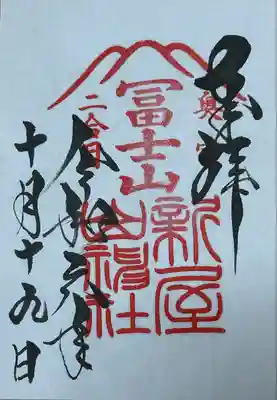 奉拝
奥宮
冨士山
二合目
新屋
山神社
令和 年
十月十九日